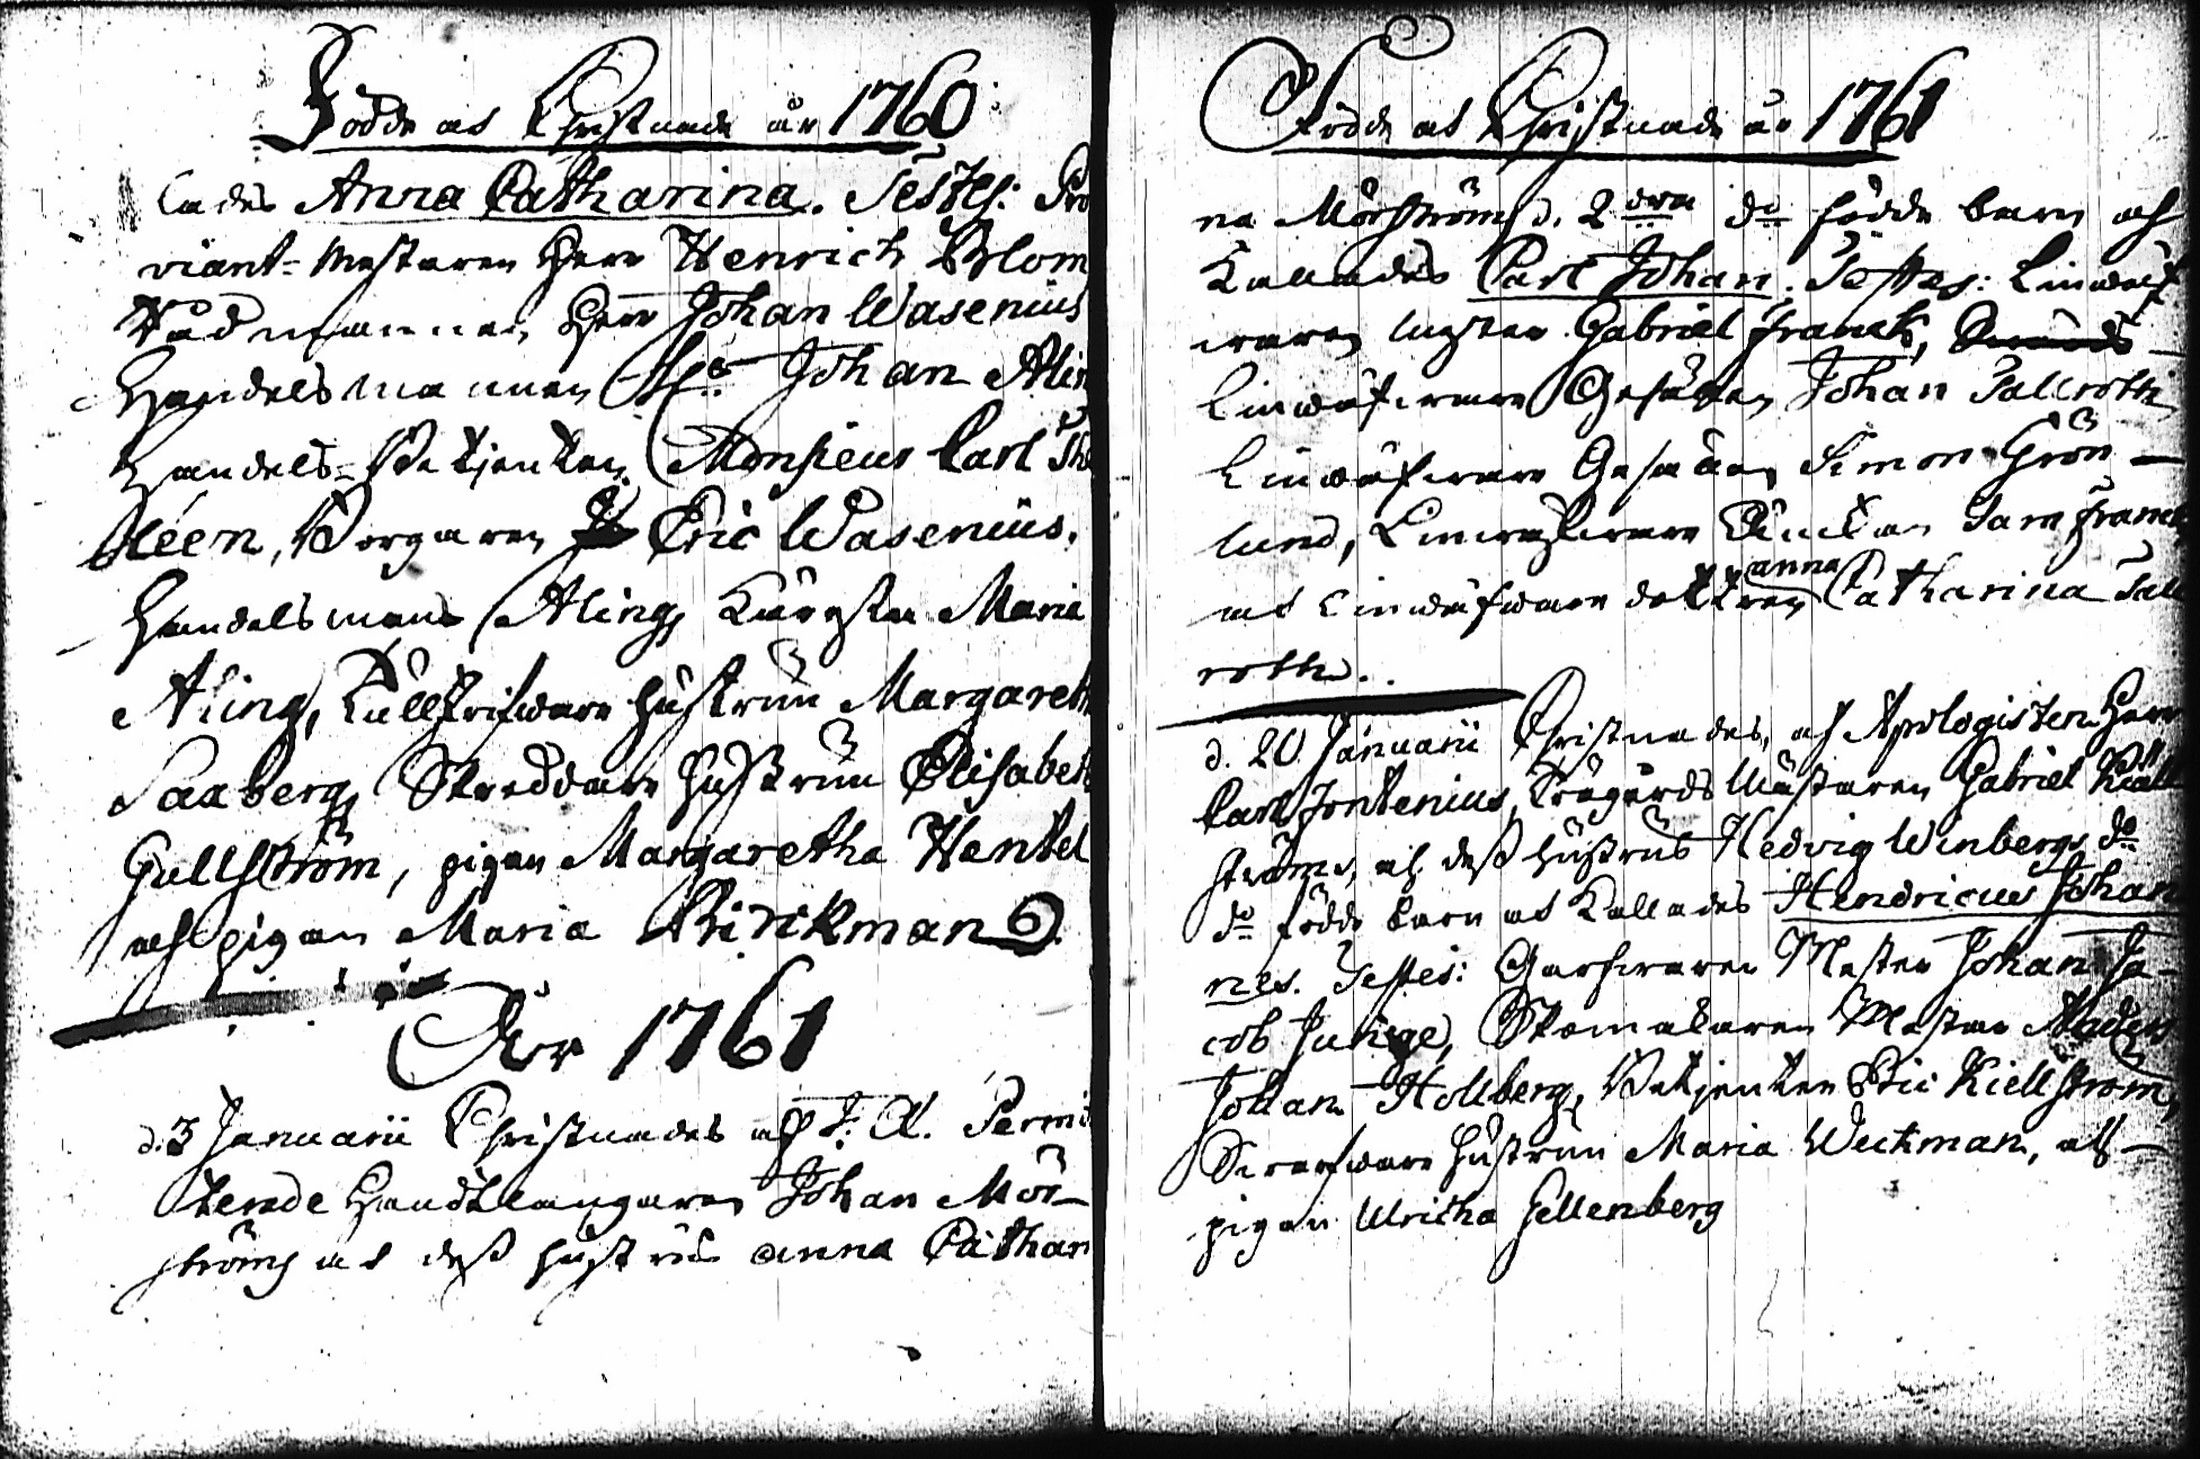 Födde och Christnade år 1760
lades Anna Catharina. Testes: Pro
viant-Mästaren Herr Henrich Blom
Rådmannen Herr Johan Wasenius
Handelsmannen Hr Johan Aling
Handels-Betjenten Monsieur Carl
Borgaren Eric Wasenius.
Handelsmans Alings Käresta Maria
Aling, Tullskrifware hustrun Margareth
Saxberg, Skreddare hustrun Elisabeth
Gullström, pigan Margaretha Wentel
och pigan Maria Brickman.
Åhr 1761
d. 3 Januarii Christnades af T. A. Permit
terade Handtlangaren Johan Mör-
ströms och dess hustrus Anna Cathari
Födde och Christnade år 1761
na Mörströms d. 2dra do födde barn och
Kallades Carl Johan. Testes: Linwäf
waren Mester Gabriel Franck,
Linwäfware Gesällen Johan Tallroth
Linwäfware Gesällen Simon Grön-
lund, Linwäfware Enckan Sara Franck
och Linwäfware dottren anna Catharina Tall
roth.
d. 20 Januarii Christnades, af Apologisten Herr
Carl Fontenius, Trägårds Mästaren Gabriel Kiäll
ströms, och dess hustrus Hedvig Winbergs do
do födde barn och Kallades Hendricus Johan
nes. Testes: Garfwaren Mester Johan Ja-
cob Junge, Skomakaren Mester
Johan Hollberg, Betjenten Eric Kiellström,
Swarfware hustrun Maria Weckman, och
pigan Ulricha Gellenberg